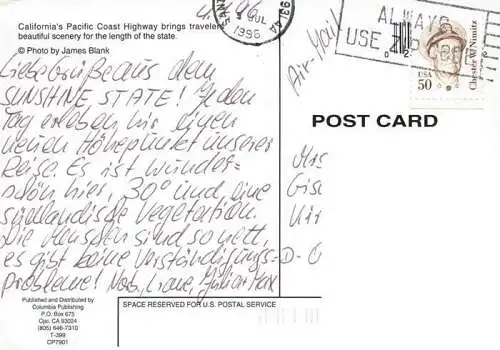 California's Pacific Coast Highway brings travelers
beautiful scenery for the length of the state.
© Photo by James Blank
JUL
1996
ALWAYS
USE ZIP CODE
Air-Mail
USA
50
Chester W. Nimitz
Liebe Grüße aus dem
SUNSHINE STATE! Jeden
Tag erleben wir einen
neuen Höhepunkt unserer
Reise. Es ist wunder-
schön hier, 30° und eine
südländische Vegetation.
Die Menschen sind so nett,
es gibt keine Verständigungs-
probleme!
POST CARD
D-
Published and Distributed by
Columbia Publishing
P.O. Box 675
Ojai, CA 93024
(805) 646-7310
T-399
CP7901
SPACE RESERVED FOR U.S. POSTAL SERVICE